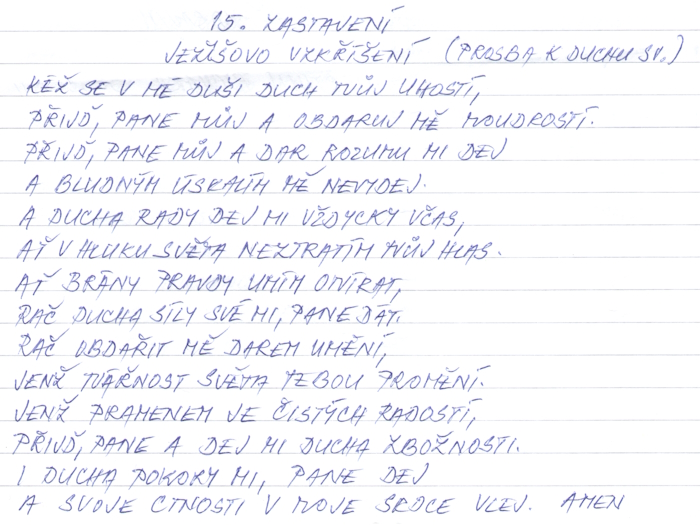 15. ZASTAVENÍ
JEŽÍŠOVO VZKŘÍŠENÍ (PROSBA K DUCHU SV.)
KÉŽ SE V MÉ DUŠI DUCH TVŮJ UHOSTÍ,
PŘIJĎ, PANE MŮJ A OBDARUJ MĚ MOUDROSTÍ.
PŘIJĎ, PANE MŮJ A DAR ROZUMU MI DEJ
A BLUDNÝM ÚSKALÍM MĚ NEVYDEJ.
A DUCHA RADY DEJ MI VŽDYCKY VČAS,
AŤ V HLUKU SVĚTA NEZTRATÍM TVŮJ HLAS.
AŤ BRÁNY PRAVDY UMÍM OTVÍRAT,
RAČ DUCHA SÍLY SVÉ MI, PANE DÁT.
RAČ OBDAŘIT MĚ DAREM UMĚNÍ,
JENŽ TVÁŘNOST SVĚTA TEBOU PROMĚNÍ.
JENŽ PRAMENEM JE ČISTÝCH RADOSTÍ,
PŘIJĎ, PANE A DEJ MI DUCHA ZBOŽNOSTI.
I DUCHA POKORY MI, PANE DEJ
A SVOJE CTNOSTI V MOJE SRDCE VLEJ. AMEN